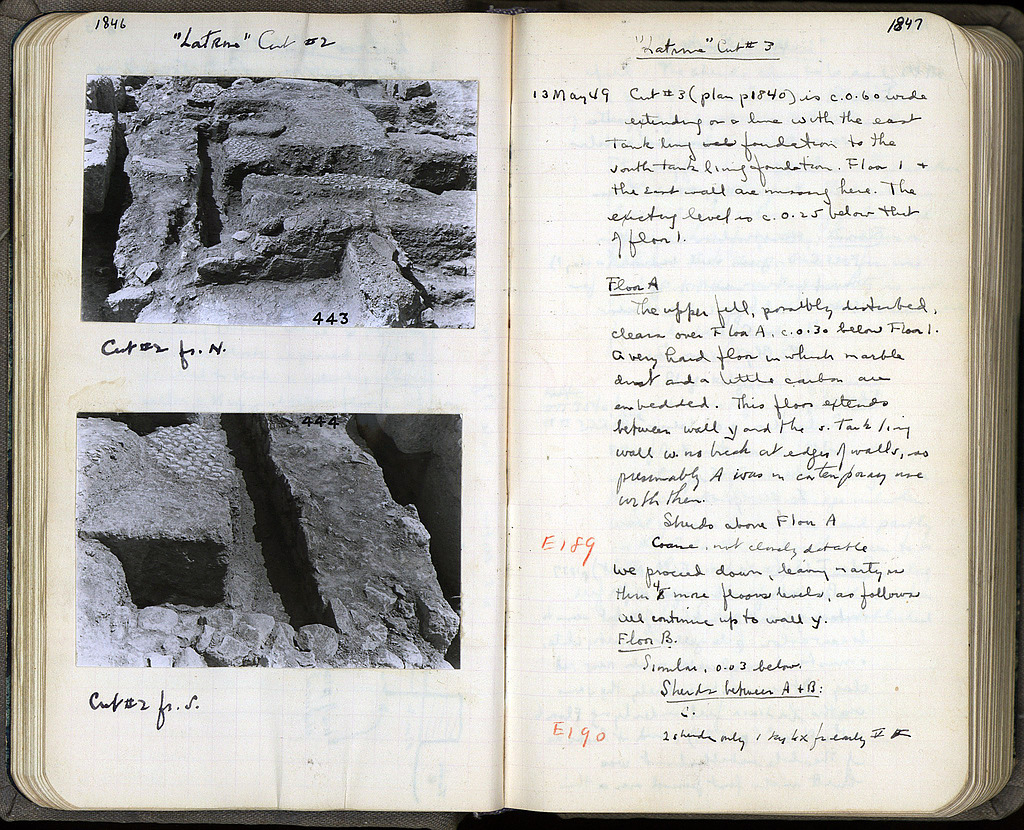 1846
"Latrine" Cut #2
443
Cut #2 fr. N.
444
Cut #2 fr. S.
1847
"Latrine" Cut #3
13 May 49 Cut #3 (plan p 1840) is c. 0.60 wide
extending on a line with the east
Tank lining foundation to the
south tank lining foundation. Floor 1 +
the east wall are missing here. The
existing level is c. 0.25 below that
of floor 1.
Floor A
The upper fill, possibly disturbed,
clears over Floor A, c. 0.30 below Floor 1.
A very hard floor in which marble
dust and a little carbon are
embedded. This floor extends
between wall y and the s. Tank lining
wall w. no break at edges of walls, so
presumably A was in contemporary use
with them.
Sherds above Floor A
E189
Coarse, not closely datable
We proceed down, leaving
thru 4 more floors levels, as follows
all continue up to wall y.
Floor B.
Similar, 0.03 below.
Sherds between A + B:
E190
2 sherds only 1 fr early V